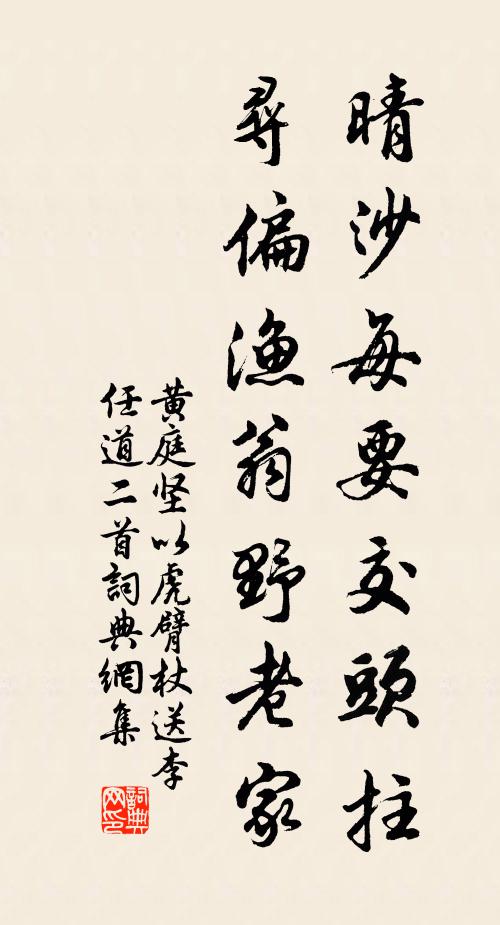 晴沙每要交頭拄
尋偏漁翁野老家
黄庭坚以虎臂杖送李
任道二首詞典網集
詞典網印